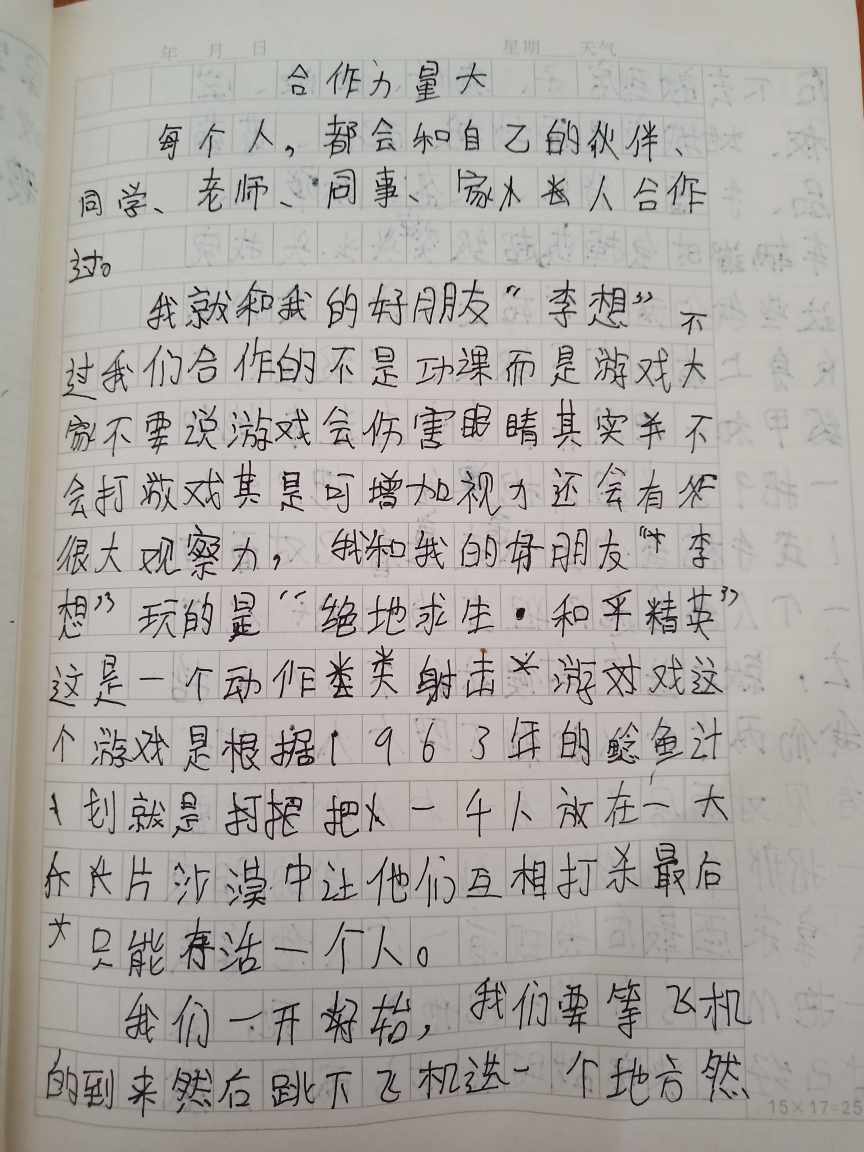 年 月 日 星期 天气
合作力量大
每个人，都会和自己的伙伴、
同学、老师、同事、家人合作
过。
我就和我的好朋友“李想”不
过我们合作的不是功课而是游戏大
家不要说游戏会伤害眼睛其实并不
会打游戏其是可增加视力还会有
很大观察力，我和我的好朋友“李
想”玩的是“绝地求生·和平精英”
这是一个动作类射击游戏这
个游戏是根据1963年的鲶鱼计
划就是把一千人放在一大
片沙漠中让他们互相打杀最后
只能存活一个人。
我们一开始，我们要等飞机
的到来然后跳下飞机选一个地方然
15×17=25